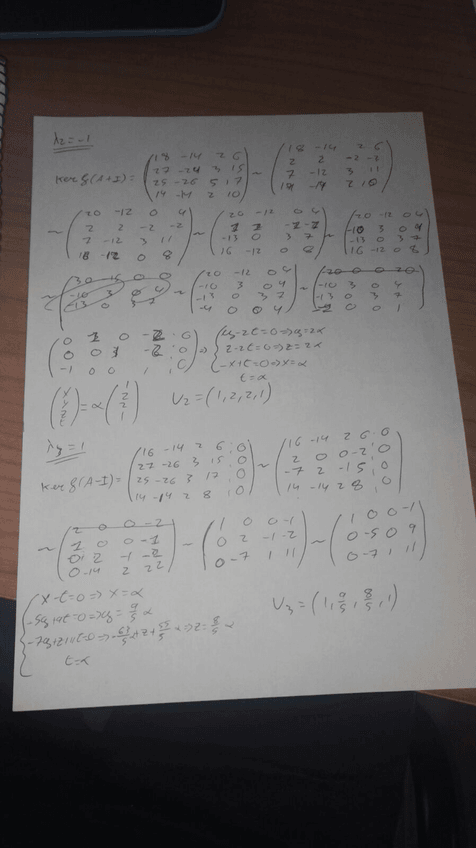 λ₂=-1
ker f(A+I)= (18 -14 2 6 / 27 -24 3 15 / 25 -26 5 17 / 14 -14 2 10) ~ (18 -14 2 6 / 2 2 -2 -2 / 7 -12 3 11 / 14 -14 2 10)
~ (20 -12 0 4 / 2 2 -2 -2 / 7 -12 3 11 / 16 -12 0 8) ~ (20 -12 0 4 / 1 1 -1 -1 / -13 0 3 7 / 16 -12 0 8) ~ (20 -12 0 4 / -10 3 0 4 / -13 0 3 7 / 16 -12 0 8)
~ ~ (20 -12 0 4 / -10 3 0 4 / -13 0 3 7 / -4 0 0 4) ~ (-10 3 0 4 / -13 0 3 7 / -1 0 0 1)
(0 1 0 -2 : 0 / 0 0 1 -2 : 0 / -1 0 0 1 : 0) ⇒ { y-2t=0 ⇒ y=2α
z-2t=0 ⇒ z=2α
-x+t=0 ⇒ x=α
t=α
(x / y / z / t) = α (1 / 2 / 2 / 1) U₂=(1,2,2,1)
=1
ker f(A-I)= (16 -14 2 6 : 0 / 27 -26 3 15 : 0 / 25 -26 3 17 : 0 / 14 -14 2 8 : 0) ~ (16 -14 2 6 : 0 / 2 0 0 -2 : 0 / -7 2 -1 5 : 0 / 14 -14 2 8 : 0)
~ (2 0 0 -2 / 1 0 0 -1 / 0 2 -1 -2 / 0 -14 2 22) ~ (1 0 0 -1 / 0 2 -1 -2 / 0 -7 1 11) ~ (1 0 0 -1 / 0 -5 0 9 / 0 -7 1 11)
{ x-t=0 ⇒ x=α
-5y+9t=0 ⇒ y= 9/5 α
-7y+z+11t=0 ⇒ -63/5 α+z+55/5 α ⇒ z= 8/5 α
t=α
U₃=(1, 9/5, 8/5, 1)